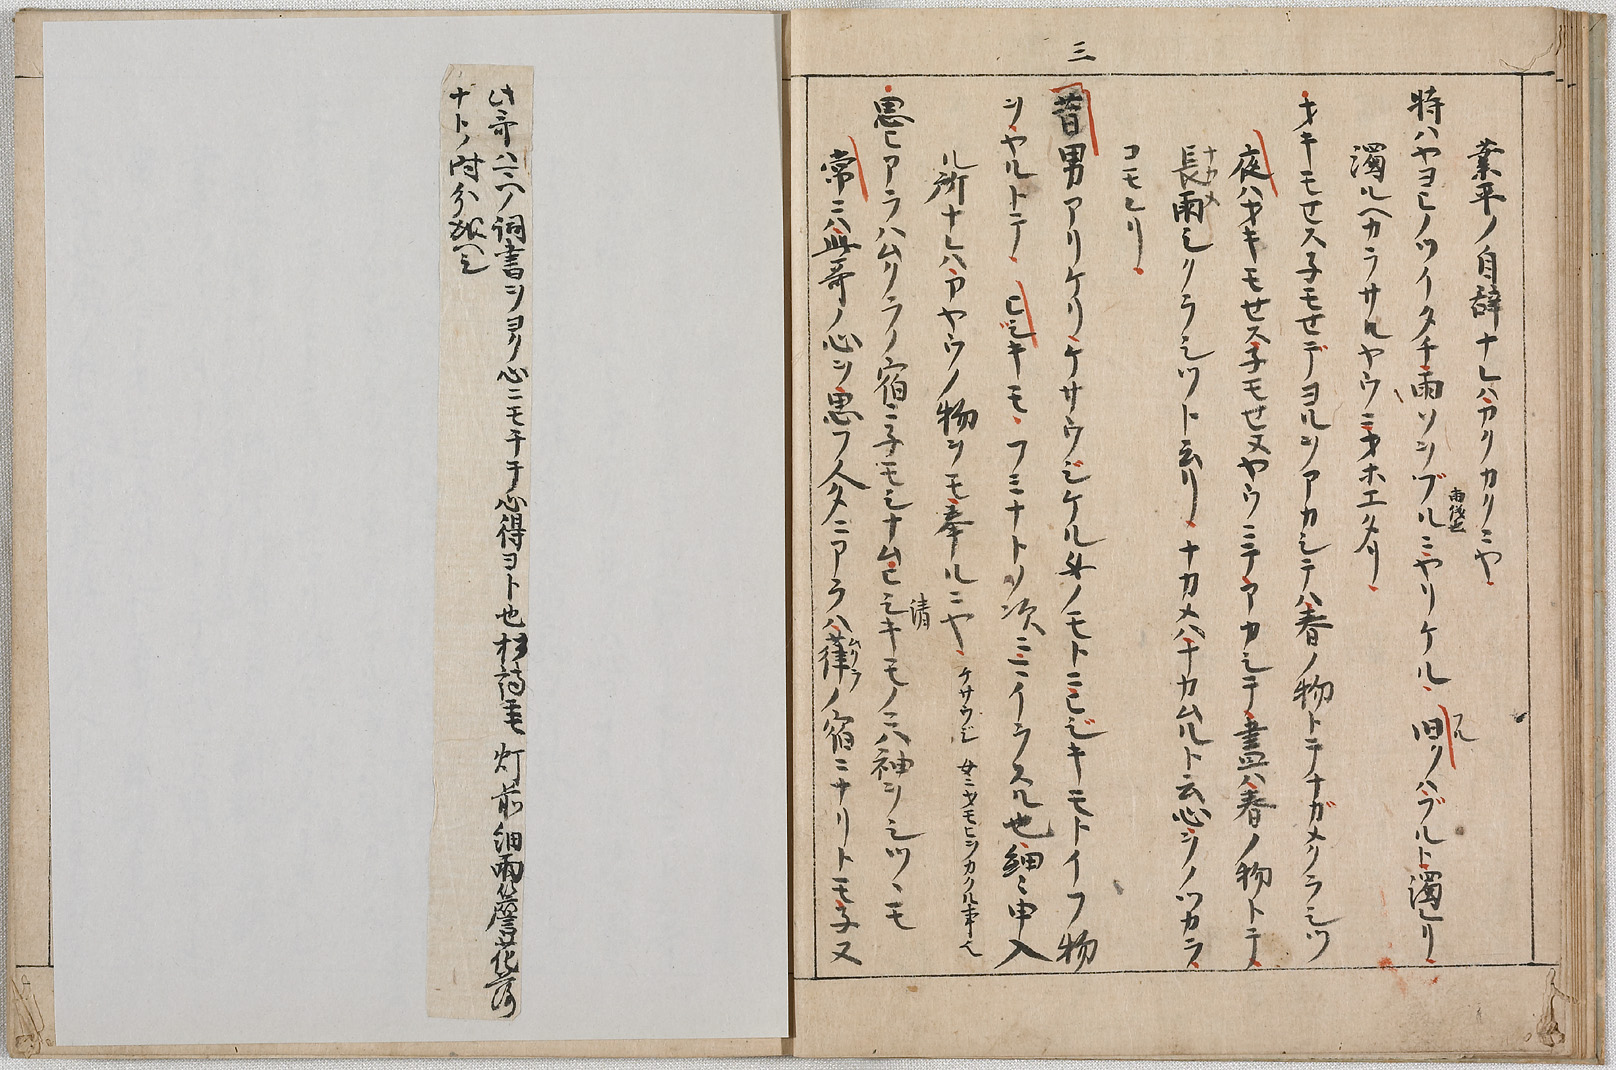 三
業平ノ自辞ナレハカクカリニヤ
時ハヤヨヒノツイタチ雨ソンブルニヤリケル、旧クハブルト濁レリ
雨後也
フル
濁ルヘカラサルヤウニオホエタリ
オキモセス子モセデヨルヲアカシテハ春ノ物トテナガメクラシツ
夜ハオキモせス子モせヌヤウニテアカシテ晝ハ春ノ物トテ
長雨シクラシツト云リ、ナカメハナカムルト云心ヲノツカラ
ナカメ
コモレリ
昔男アリケリケサウジケル女ノモトニヒジキモトイフ物
ヲヤルトテ、ヒシキモ、フミナトノ次ニニイラスル也細々申入
ル所ナレハアヤウノ物ヲモ奉ルニヤ
ケサウジ 女ニオモヒヲカクル事也
思ヒアラハムクラノ宿ニ子モシナムヒシキモノニハ袖ヲシツヽモ
清
常ニハ此哥ノ心ヲ思フ人タニアラハ葎ノ宿ニナリトモ子又
ムクラ
此哥ハ二ヘノ詞書ヲヨク心ニモチテ心得ヨト也杜詩モ 灯前細雨簷花落
ナトノ時分歟ヘシ